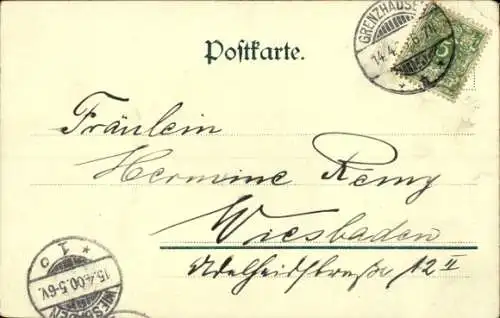 GRENZHAUSEN
14.4.
Postkarte.
5
Fräulein
Hermine Remy
Wiesbaden
Adelheidstraße 12 II
* 1 c
15.4.00.5-6V.
WIESBADEN